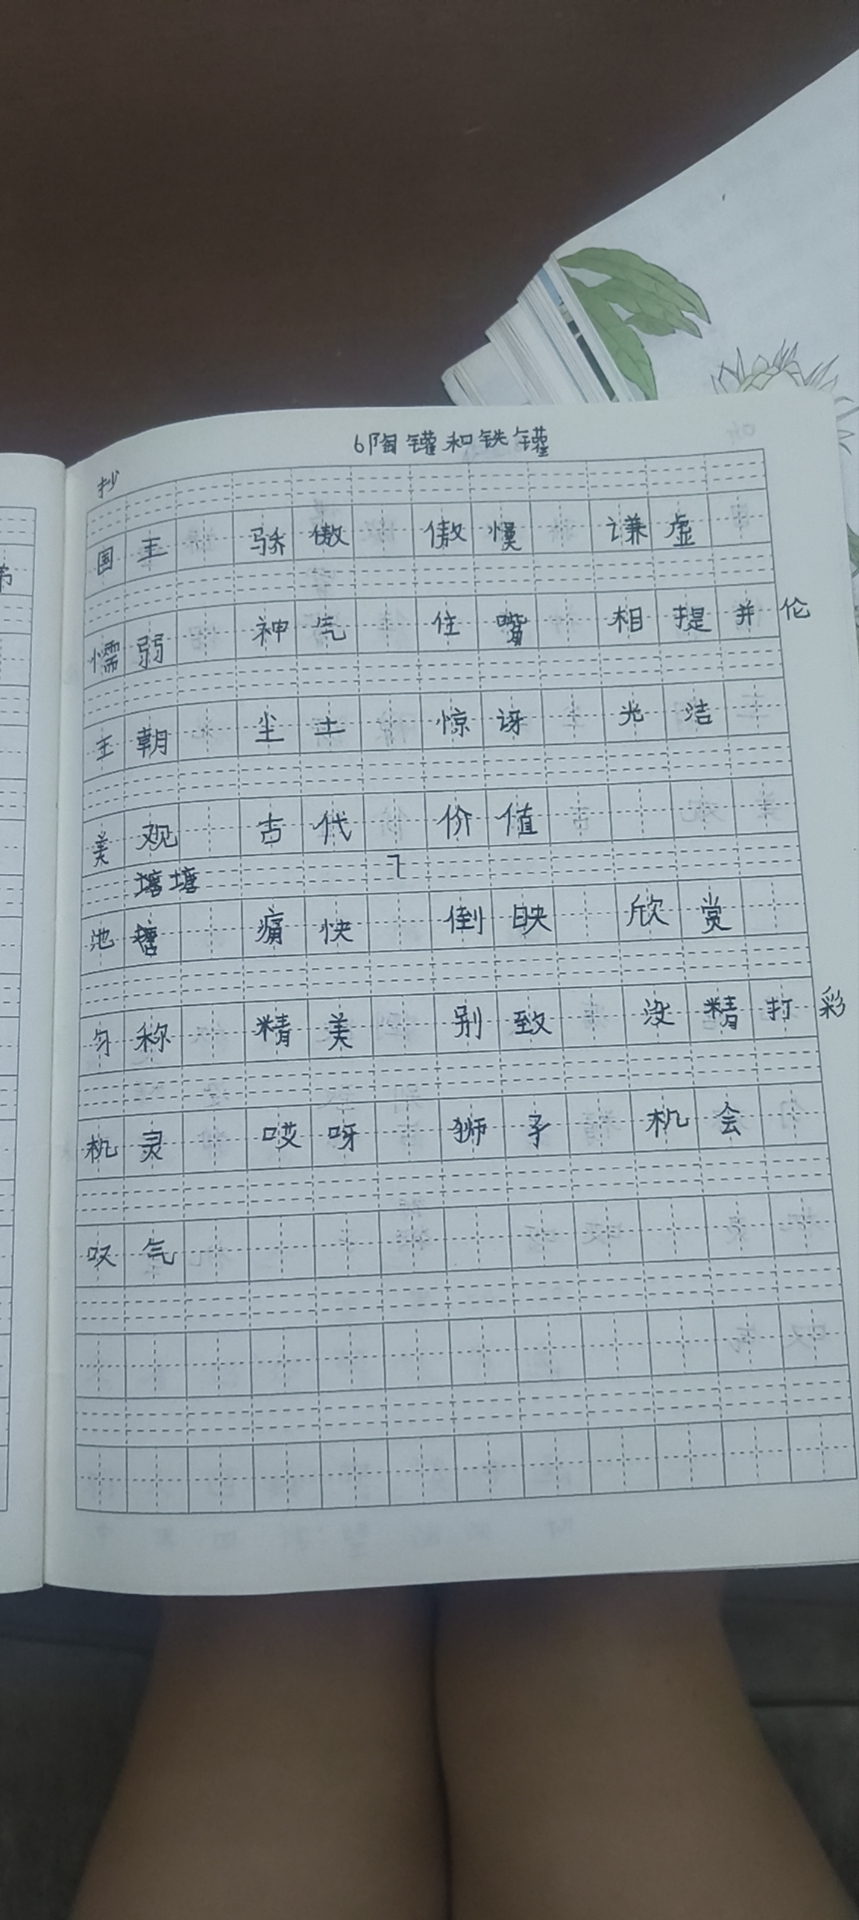 6陶罐和铁罐
抄
国王 骄傲 傲慢 谦虚
懦弱 神气 住嘴 相提并伦
王朝 尘土 惊讶 光洁
美观 古代 价值
塘塘 7
池塘 痛快 倒映 欣赏
匀称 精美 别致 没精打彩
机灵 哎呀 狮子 机会
叹气